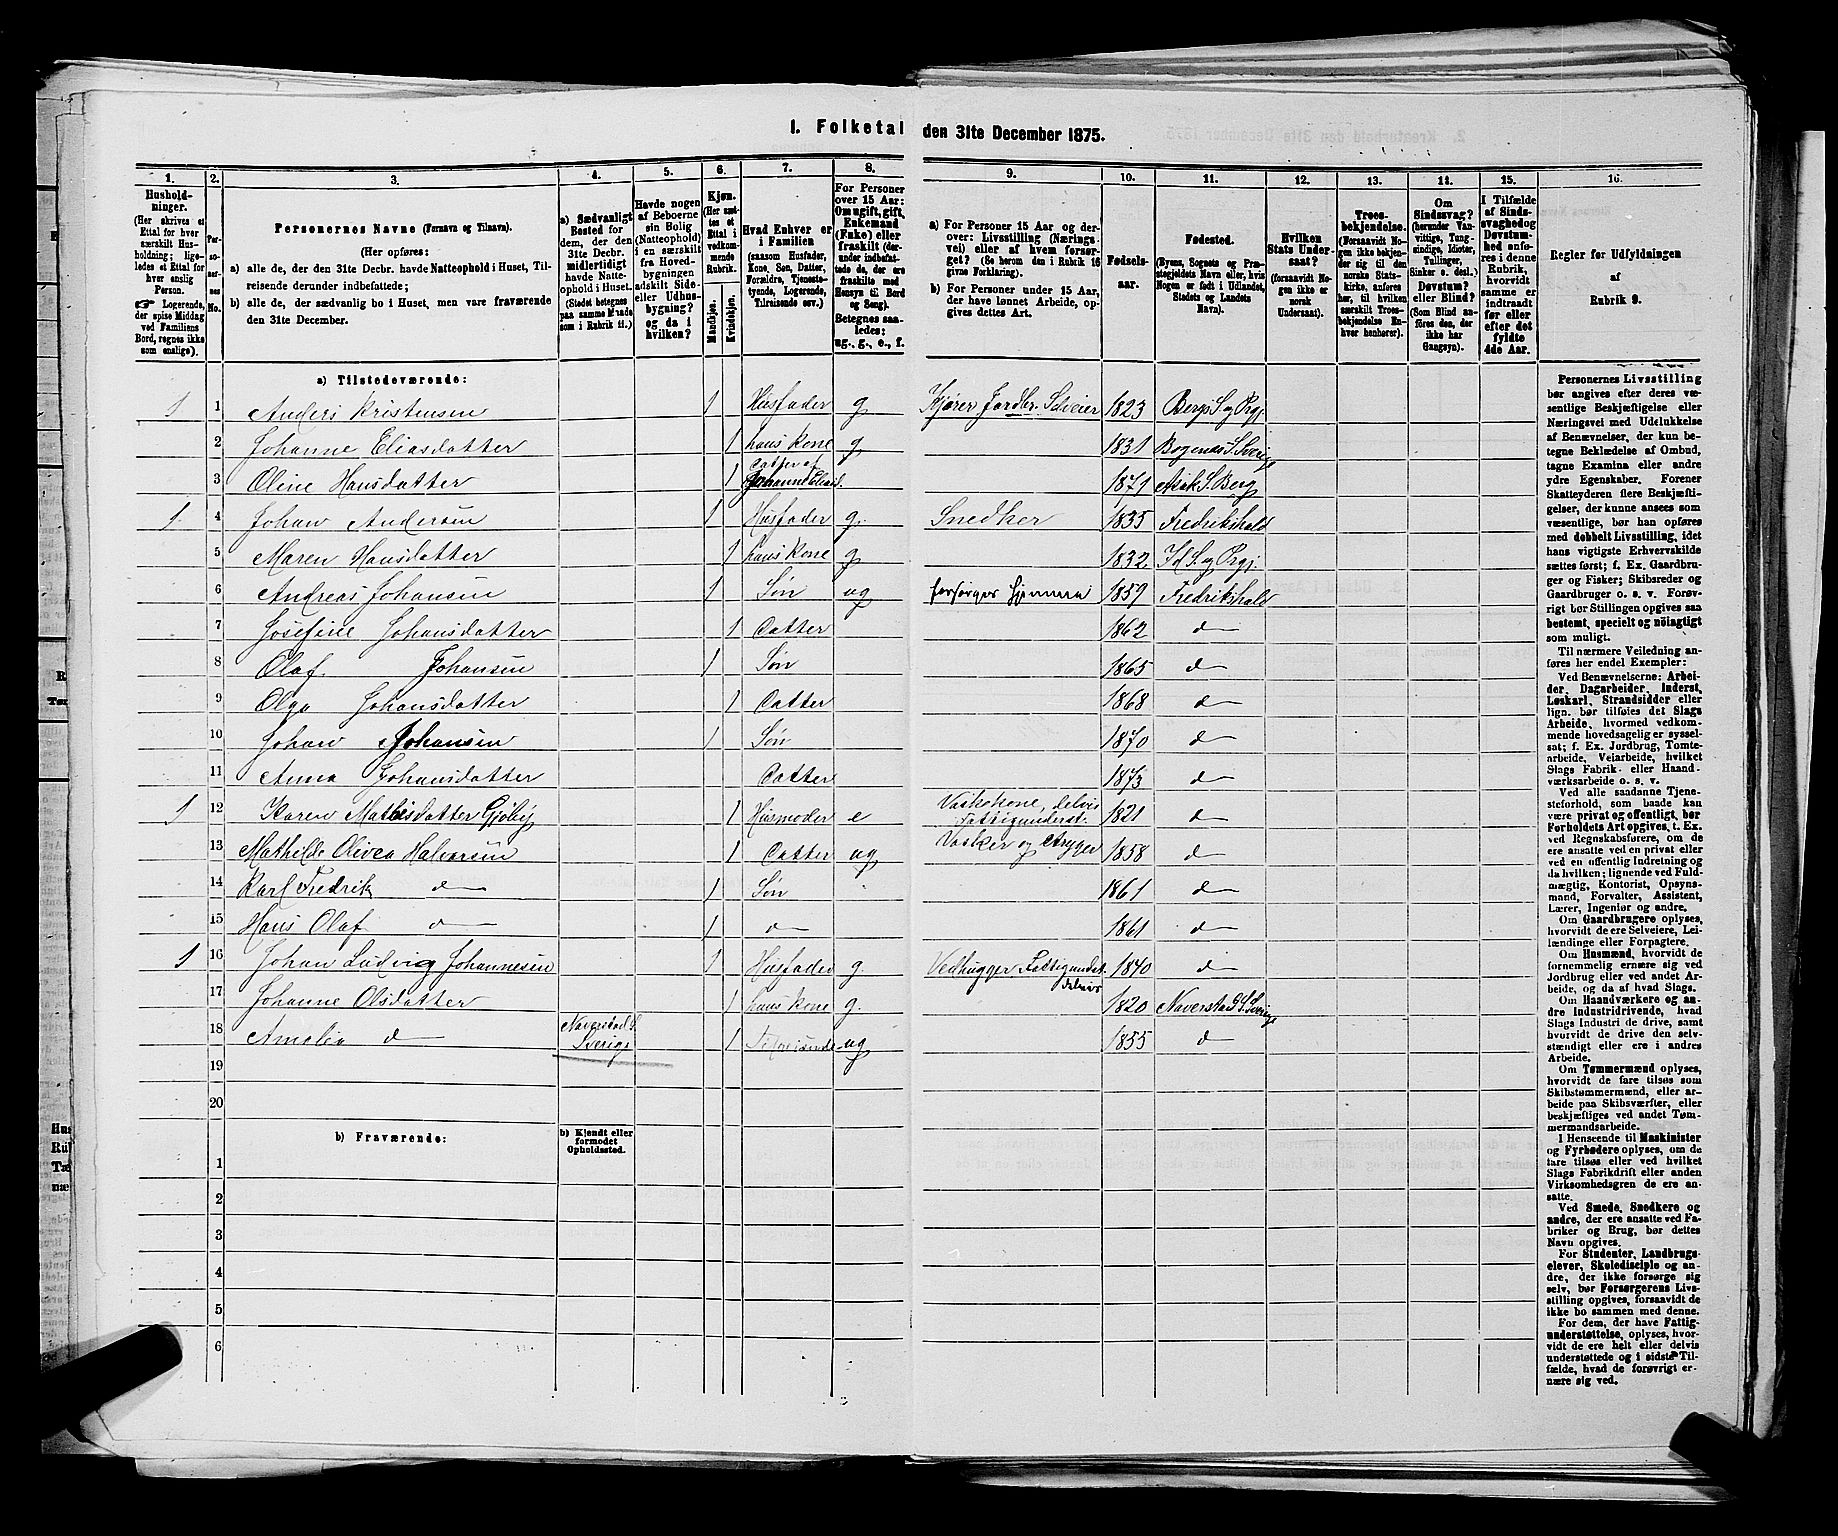 1. Folketal den 31te December 1875.
1. 2. 3. 4. 5. 6. 7. 8. 9. 10. 11. 12. 13. 14. 15. 16.
Husholdninger.
(Her skrives et
Ettal for hver
særskilt Husholdning;
ligeledes et Ettal for
hver enslig
Person.
☞ Logerende,
der spise Middag
ved Familiens
Bord, regnes ikke
som enslige).
Personernes No.
Personernes Navne (Fornavn og Tilnavn).
(Her opføres:
a) alle de, der den 31te Decbr. havde Natteophold i Huset, Tilreisende derunder indbefattede;
b) alle de, der sædvanlig bo i Huset, men vare fraværende
den 31te December.
a) Sædvanligt
Bosted for
dem, der den
31te Decbr.
midlertidigt
havde Natteophold i Huset.
(Stedet betegnes
paa samme Maade
som i Rubrik 11.)
Havde nogen
af Beboerne
sin Bolig
(Natteophold)
i en særskilt
fra Hovedbygningen
adskilt Side- eller Udhusbygning?
og da i
hvilken?
Kjøn.
(Her sættes et
Ettal i
vedkommende
Rubrik.
Mandkjøn.
Kvindekjøn.
Hvad Enhver er
i Familien
(saasom Husfader,
Kone, Søn, Datter,
Forældre, Tjenestetyende, Logerende,
Tilreisende osv.)
For Personer
over 15 Aar:
Om ugift, gift,
Enkemand
(Enke) eller
fraskilt (derunder indbefattede, de, der ere
fraskilte med
Hensyn til Bord
og Seng).
Betegnes saaledes:
ug., g., e., f.
a) For Personer 15 Aar og derover: Livsstilling (Næringsvei) eller af hvem forsørget? (Se herom den i Rubrik 16
givne Forklaring).
b) For Personer under 15 Aar,
der have lønnet Arbeide, opgives dettes Art.
Fødselsaar.
Fødested.
(Byens, Sognets og Præstegjeldets Navn eller, hvis
Nogen er født i Udlandet,
Stedets og Landets
Navn).
Hvilken
Stats Undersaat?
(forsaavidt Nogen ikke er
norsk
Undersaat).
Troesbekjendelse.
(Forsaavidt Nogen ikke bekjender sig til den
norske Statskirke, anføres
her, til hvilken
særskilt Troesbekjendelse Enhver henhører).
Om
Sindssvag?
(herunder Vanvittige, Tungsindige, Idioter,
Tullinger,
Sinker o. desl.)
Døvstum?
eller Blind?
(Som Blind anføres den, der
ikke har
Gangsyn).
I Tilfælde
af Sindssvaghed og
Døvstumhed anføres i denne
Rubrik,
hvorvidt
samme er
indtraadt
før eller
efter det
fyldte
4de Aar.
Regler for Udfyldningen
af
Rubrik 9.
a) Tilstedeværende:
1 1 Anders Kristensen 1 Husfader g Kjører Jordbr. Selveier 1823 Bergs S. og Prgj.
2 Johanne Eliasdatter 1 hans Kone g 1831 Bogenæs S. Sverige
3 Oline Hansdatter 1 Datter af Johanne Eliasd. 1871 Asak S. Berg
1 4 Johan Andersen 1 Husfader g. Snedker 1835 Fredrikshald
5 Maren Hansdatter 1 hans Kone g 1832 Id S. og Prgj.
6 Andreas Johansen 1 Søn ug forsørges hjemme 1859 Fredrikshald
7 Josefine Johansdatter 1 Datter 1862 d
8 Olaf Johansen 1 Søn 1865 d
9 Olga Johansdatter 1 Datter 1868 d
10 Johan Johansen 1 Søn 1870 d
11 Anna Johansdatter Datter 1873 d
1 12 Karen Mathisdatter Gjølby 1 Husmoder e Vaskekone, delvis Fattigunderst. 1821 d
13 Mathilde Olivea Halvorsen 1 Datter ug Vasker og Stryger 1858 d
14 Karl Fredrik d 1 Søn 1861 d
15 Hans Olaf d 1 d 1861 d
1 16 Johan Ludvig Johannesen 1 Husfader g. Vedhugger Fattigundst. delvis 1840 d
17 Johanne Olsdatter 1 hans Kone g. 1820 Naverstad S. Sverige
18 Amalia d Naverstad S. Sverige 1 Tilreisende ug 1855 d
19
20
b) Fraværende:
b) Kjendt eller
formodet
Opholdssted.
1
2
3
4
5
6
Personernes Livsstilling
bør angives efter deres væsentlige Beskjæftigelse eller
Næringsvei med Udelukkelse
af Benævnelser, der kun betegne Beklædelse af Ombud,
tagne Examina eller andre
ydre Egenskaber. Forener
Skatteyderen flere Beskjæftigelser, der kunne ansees som
væsentlige, bør han opføres
med dobbelt Livsstilling, idet
hans vigtigste Erhvervskilde
sættes først; f. Ex. Gaardbruger og Fisker; Skibsreder og
Gaardbruger o. s. v. Forøvrigt bør Stillingen opgives saa
bestemt, specielt og nöiagtigt
som muligt.
Til nærmere Veiledning anføres her endel Exempler:
Ved Benævnelserne: Arbeider, Dagarbeider, Inderst,
Løskarl, Strandsidder eller
lign. bør tilføies det Slags
Arbeide, hvormed vedkommende hovedsagelig er sysselsat; f. Ex. Jordbrug, Tomtearbeide, Veiarbeide, hvilket
Slags Fabrik- eller Haandværksarbeide o. s. v.
Ved alle saadanne Tjenesteforhold, som baade kan
være privat og offentligt, bør
Forholdets Art opgives, t. Ex.
ved Regnskabsførere, om de
ere ansatte ved en privat eller
ved en offentlig Indretning og
da hvilken; lignende ved Fuldmægtig, Kontorist, Opsynsmand, Forvalter, Assistent,
Lærer, Ingeniør og andre.
Om Gaardbrugere oplyses,
hvorvidt de ere Selveiere, Leilændinge eller Forpagtere.
Om Husmænd, hvorvidt de
fornemmelig ernære sig ved
Jordbrug eller ved andet Arbeide, og da af hvad Slags.
Om Haandværkere og andre Industridrivende, hvad
Slags Industri de drive, samt
hvorvidt de drive den selvstændigt eller ere i andres
Arbeide.
Om Tømmermænd oplyses,
hvorvidt de fare tilsøs som
Skibstømmermænd, eller arbeide paa Skibsværfter, eller
beskjæftiges ved andet Tømmermandsarbeide.
I Henseende til Maskinister
og Fyrbødere oplyses, om de
fare tilsøs eller ved hvilket
Slags Fabrikdrift eller anden
Virksomhedsgren de ere ansatte.
Ved Smede, Snedkere og
andre, der ere ansatte ved Fabriker og Brug, bør dettes
Navn opgives.
For Studenter, Landbrugselever, Skoledisciple og andre, der ikke forsørge sig
selv, bør Forsørgerens Livsstilling opgives, forsaavidt de
ikke bo sammen med denne.
For dem, der have Fattigunderstøttelse, oplyses, hvorvidt de ere helt eller delvis
understøttede og i sidste Tilfælde, hvad de forøvrigt ernære sig ved.